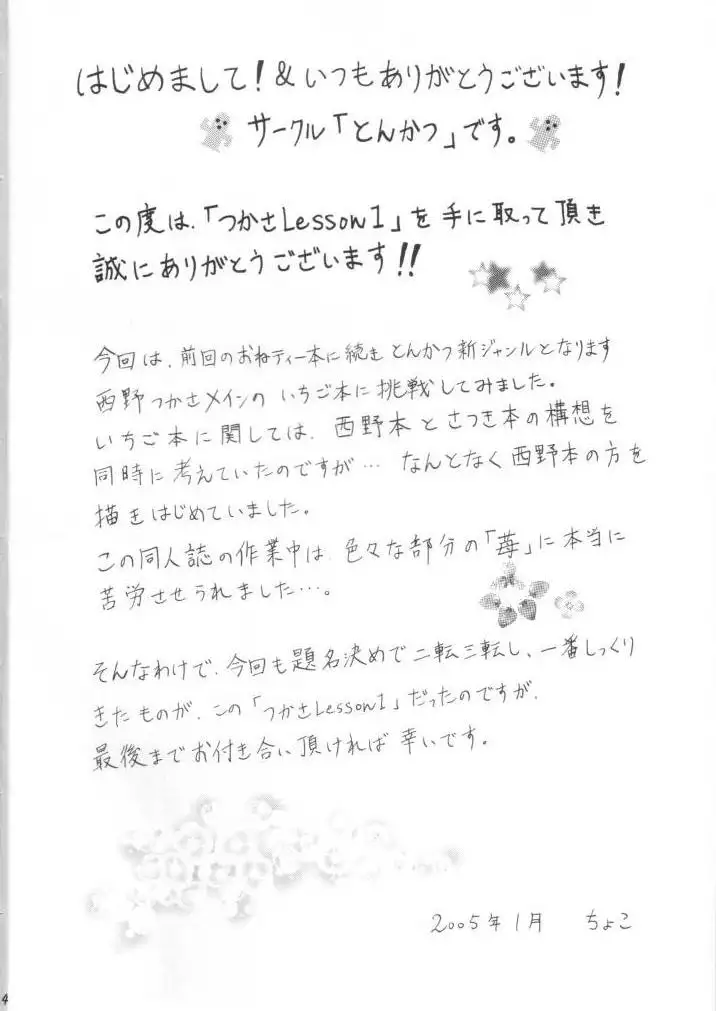 はじめまして!&いつもありがとうございます!
サークル「とんかつ」です。
この度は、「つかさLesson1」を手に取って頂き
誠にありがとうございます!!
今回は、前回のおねティー本に続きとんかつ新ジャンルとなります
西野つかさメインのいちご本に挑戦してみました。
いちご本に関しては、西野本とさつき本の構想を
同時に考えていたのですが…なんとなく西野本の方を
描きはじめていました。
この同人誌の作業中は、色々な部分の「苺」に本当に
苦労させられました…。
そんなわけで、今回も題名決めで二転三転し、一番しっくり
きたものが、この「つかさLesson1」だったのですが、
最後までお付き合い頂ければ幸いです。
2005年1月 ちょこ
4